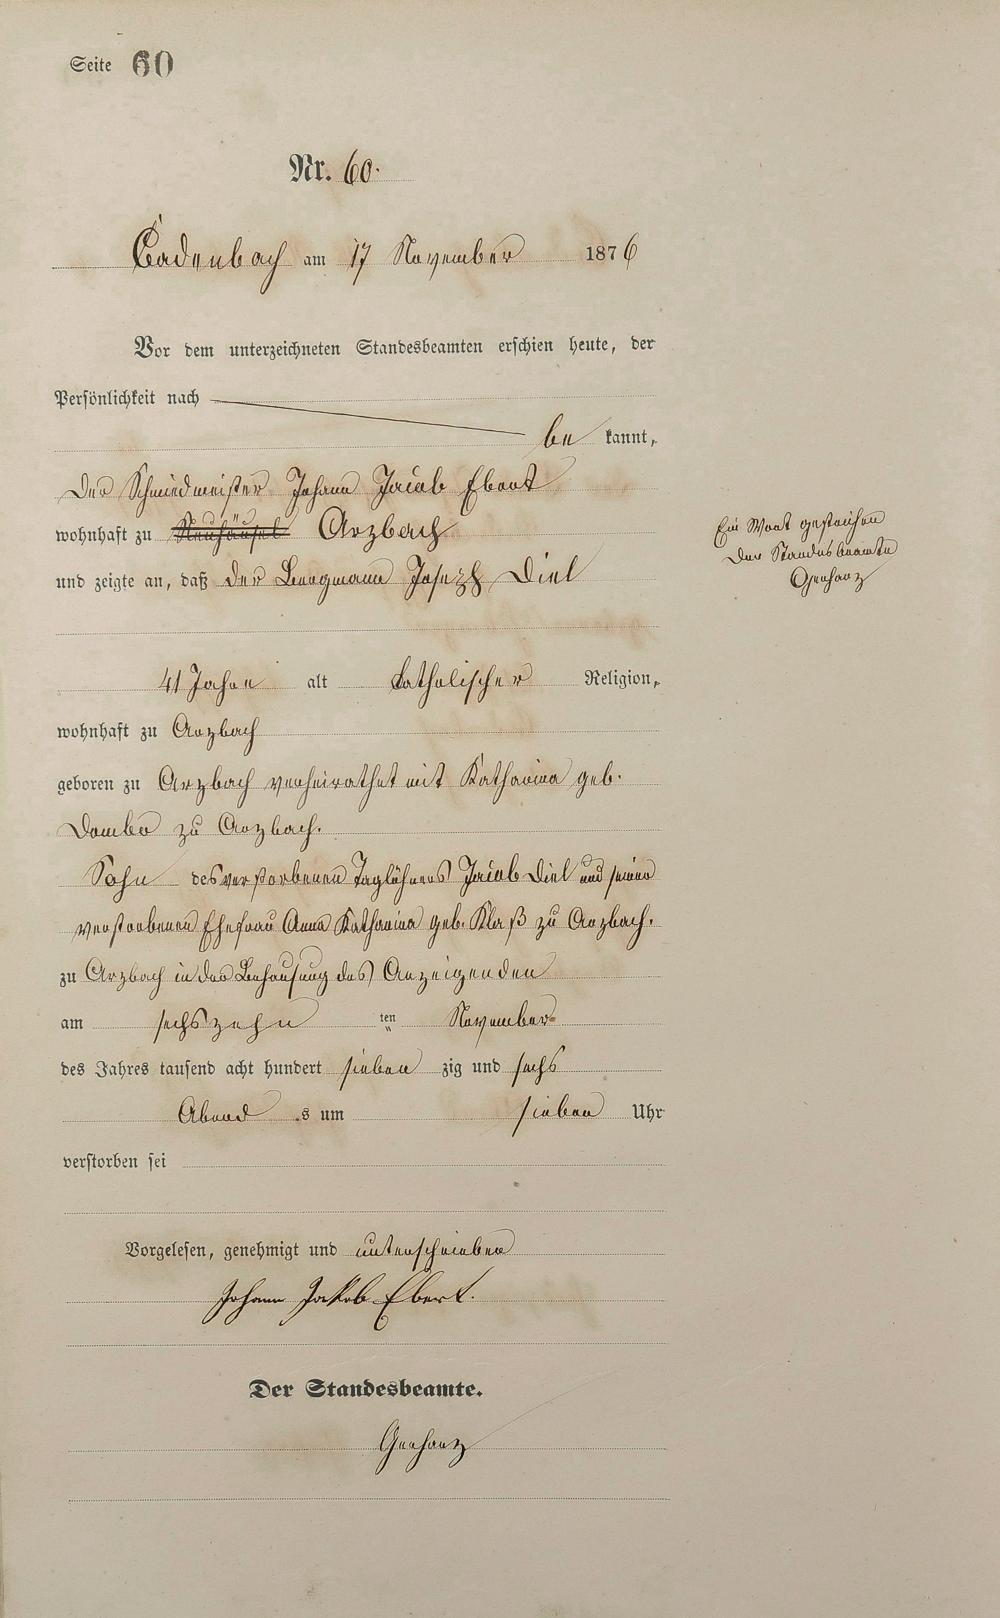 Seite 60
Nr. 60.
Cadenbach am 17 November 1876
Vor dem unterzeichneten Standesbeamten erschien heute, der
Persönlichkeit nach
be kannt,
der Schmiedmeister Johann Jacob Ebert
wohnhaft zu Neuhäusel Arzbach
und zeigte an, daß der Bergmann Joseph Diel
41 Jahre alt katholischer Religion,
wohnhaft zu Arzbach
geboren zu Arzbach verheirathet mit Katharina geb.
zu Arzbach.
Sohn des verstorbenen Taglöhners Jacob Diel und seiner
verstorbenen Ehefrau Anna Katharina geb. Klaß zu Arzbach.
zu Arzbach in der Behausung des Anzeigenden
am sechszehn ten November
des Jahres tausend acht hundert sieben zig und sechs
Abend s um sieben Uhr
verstorben sei
Vorgelesen, genehmigt und unterschrieben
Johann Jakob Ebert.
Der Standesbeamte.
Gerharz
Ein Wort gestrichen
Der Standesbeamte
Gerharz